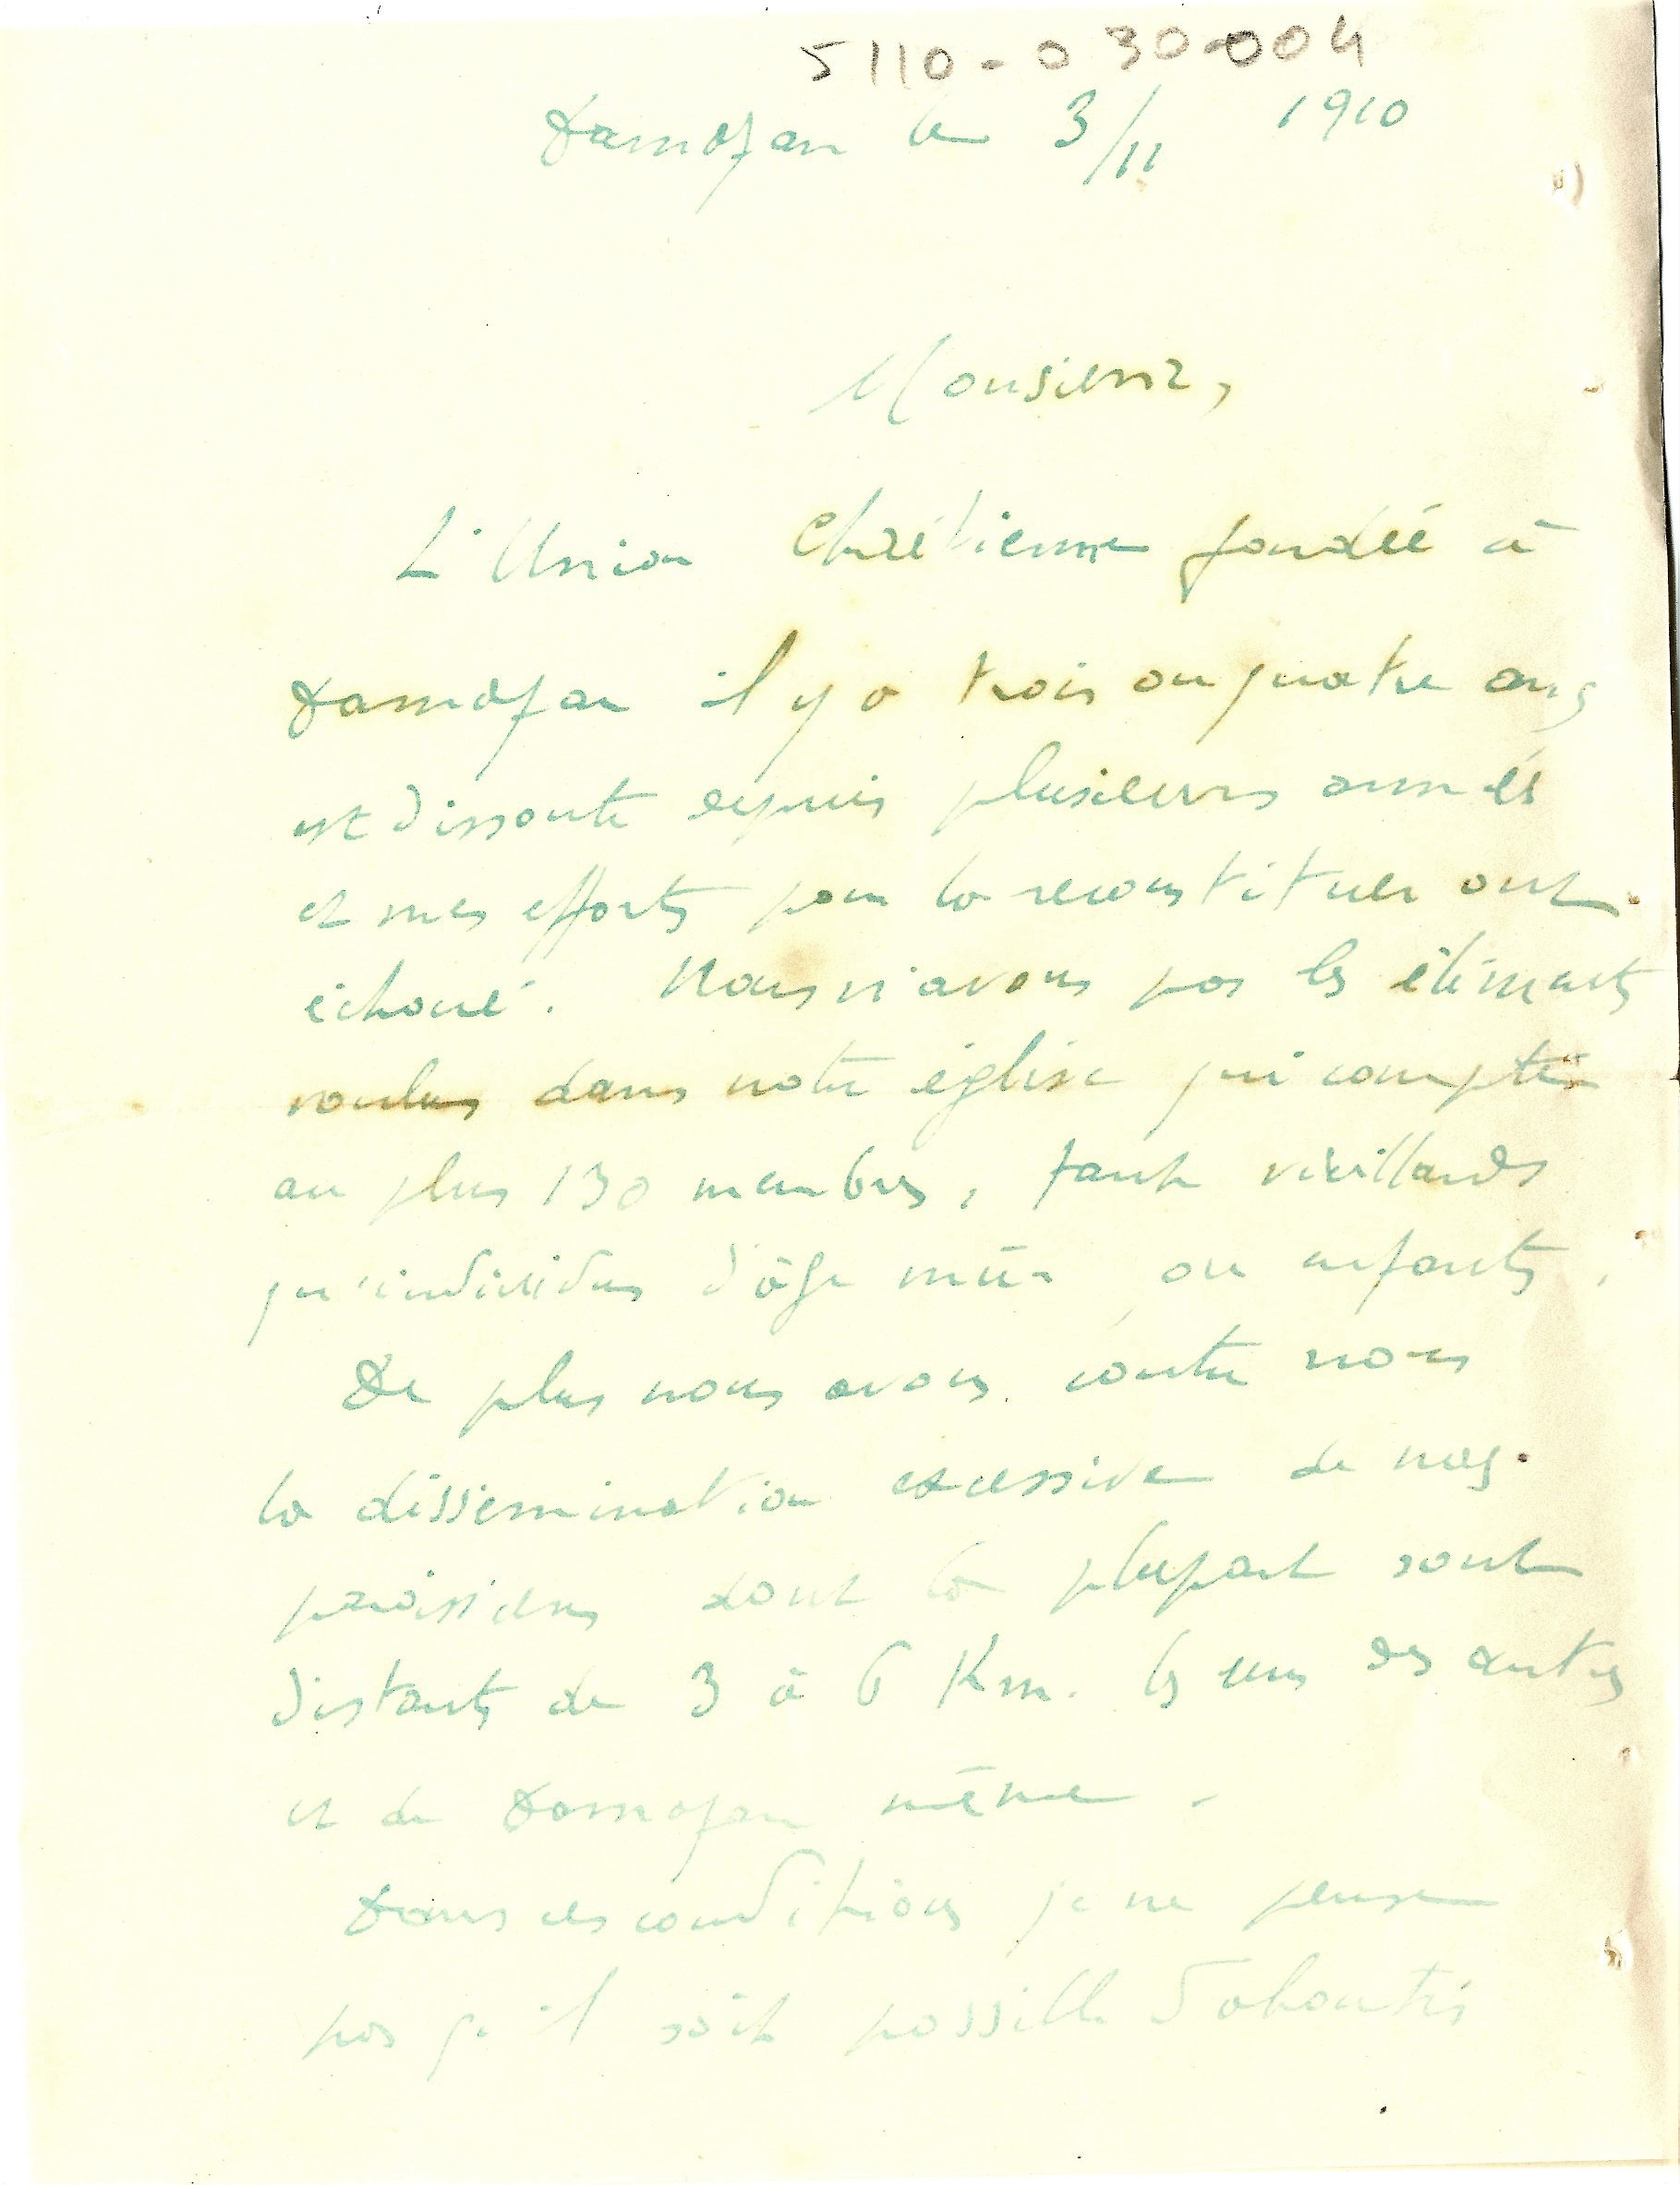 5110-030-004
Damazan le 3/11 1910
Monsieur,
L'Union Chrétienne fondée à
Damazan il y a trois ou quatre ans
est dissoute depuis plusieurs années
et mes efforts pour la reconstituer ont
échoué. Nous n'avons pas les éléments
voulus dans notre église qui compte
au plus 130 membres, tant vieillards
qu'individus d'âge mûr ou enfants.
De plus nous avons contre nous
la dissémination excessive de nos
paroissiens dont la plupart sont
distants de 3 à 6 Km. les uns des autres
et de Damazan même.
Dans ces conditions je ne pense
pas qu'il soit possible d'aboutir